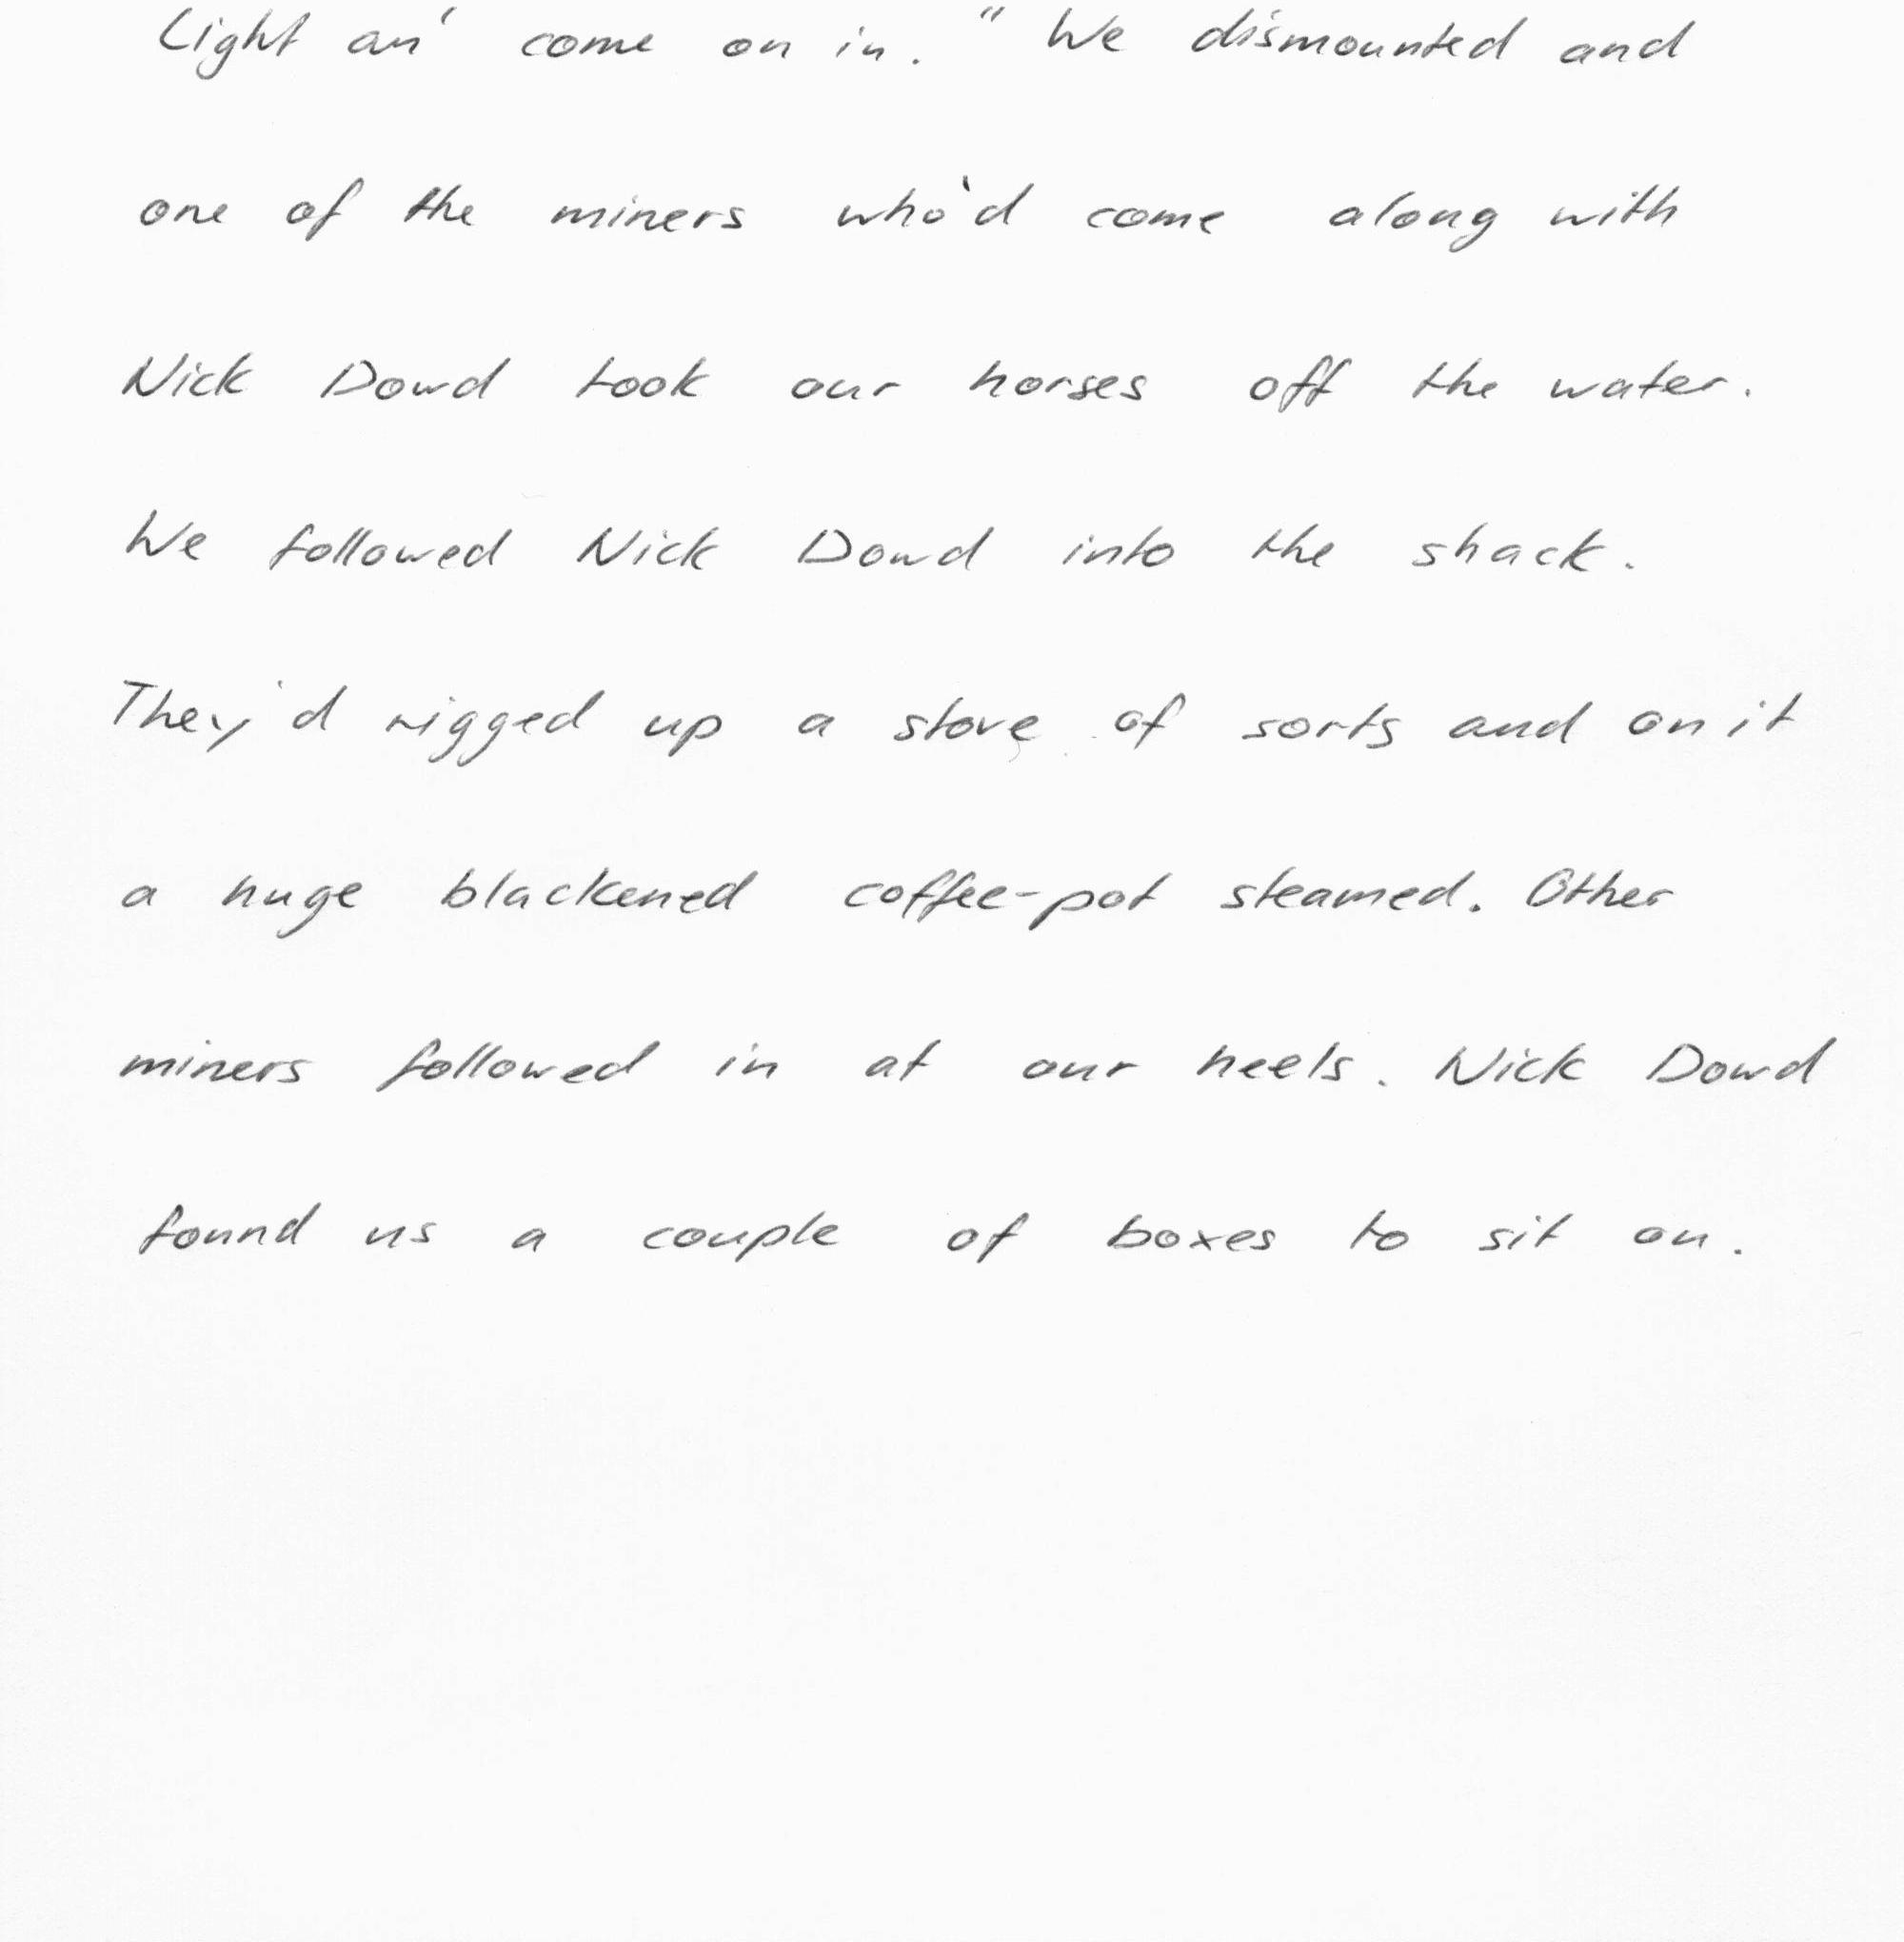 Light an' come on in." We dismounted and
one of the miners who'd come along with
Nick Dowd took our horses off the water.
We followed Nick Dowd into the shack.
They'd rigged up a stove of sorts and on it
a huge blackened coffee-pot steamed. Other
miners followed in at our heels. Nick Dowd
found us a couple of boxes to sit on.